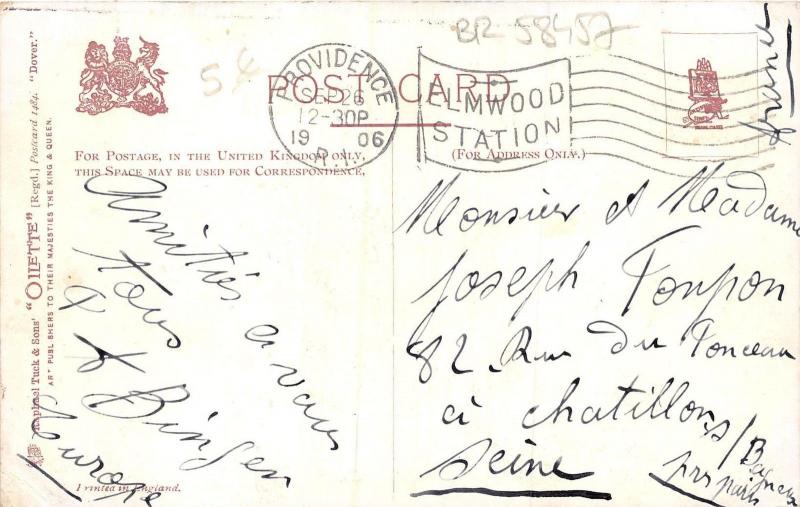 BR 58457
5¢
POST CARD
PROVIDENCE
SEP 26
12-30P
19 06
R.I.
ELMWOOD
STATION
FOR POSTAGE, IN THE UNITED KINGDOM ONLY,
THIS SPACE MAY BE USED FOR CORRESPONDENCE,
(FOR ADDRESS ONLY.)
Raphael Tuck & Sons' "OILETTE" [Regd.] Postcard 1484. "Dover."
ART PUBLISHERS TO THEIR MAJESTIES THE KING & QUEEN.
Amitiés a vous
tous
Binger
Europe
Monsieur et Madame
Joseph Toupon
82 Rue du Ponceau
à chatillon s/ Bagneux
Seine près paris
France
Printed in England.